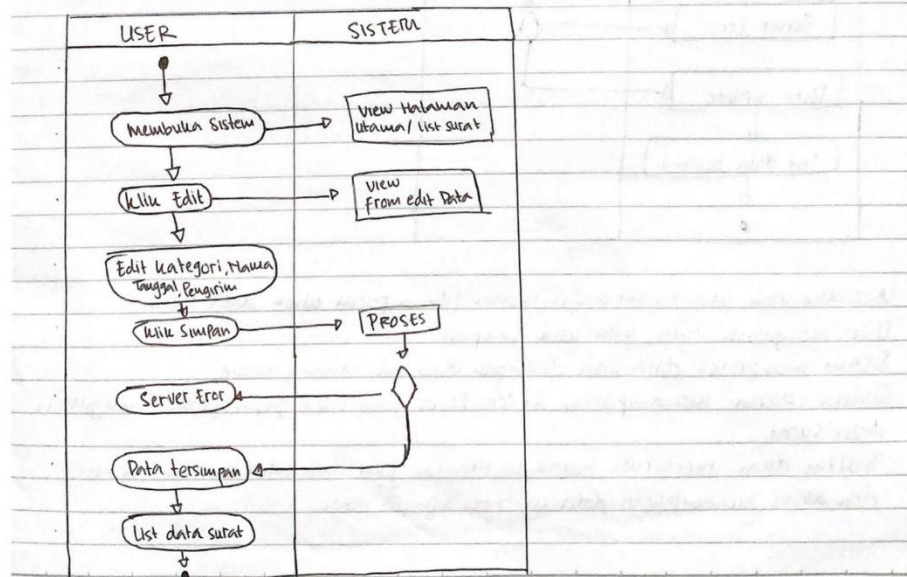 USER
SISTEM
Membuka Sistem
View Halaman
Utama/ list surat
Klik Edit
View
From edit Data
Edit Kategori, Nama
Tanggal, Pengirim
Klik Simpan
PROSES
Server Eror
Data tersimpan
List data surat